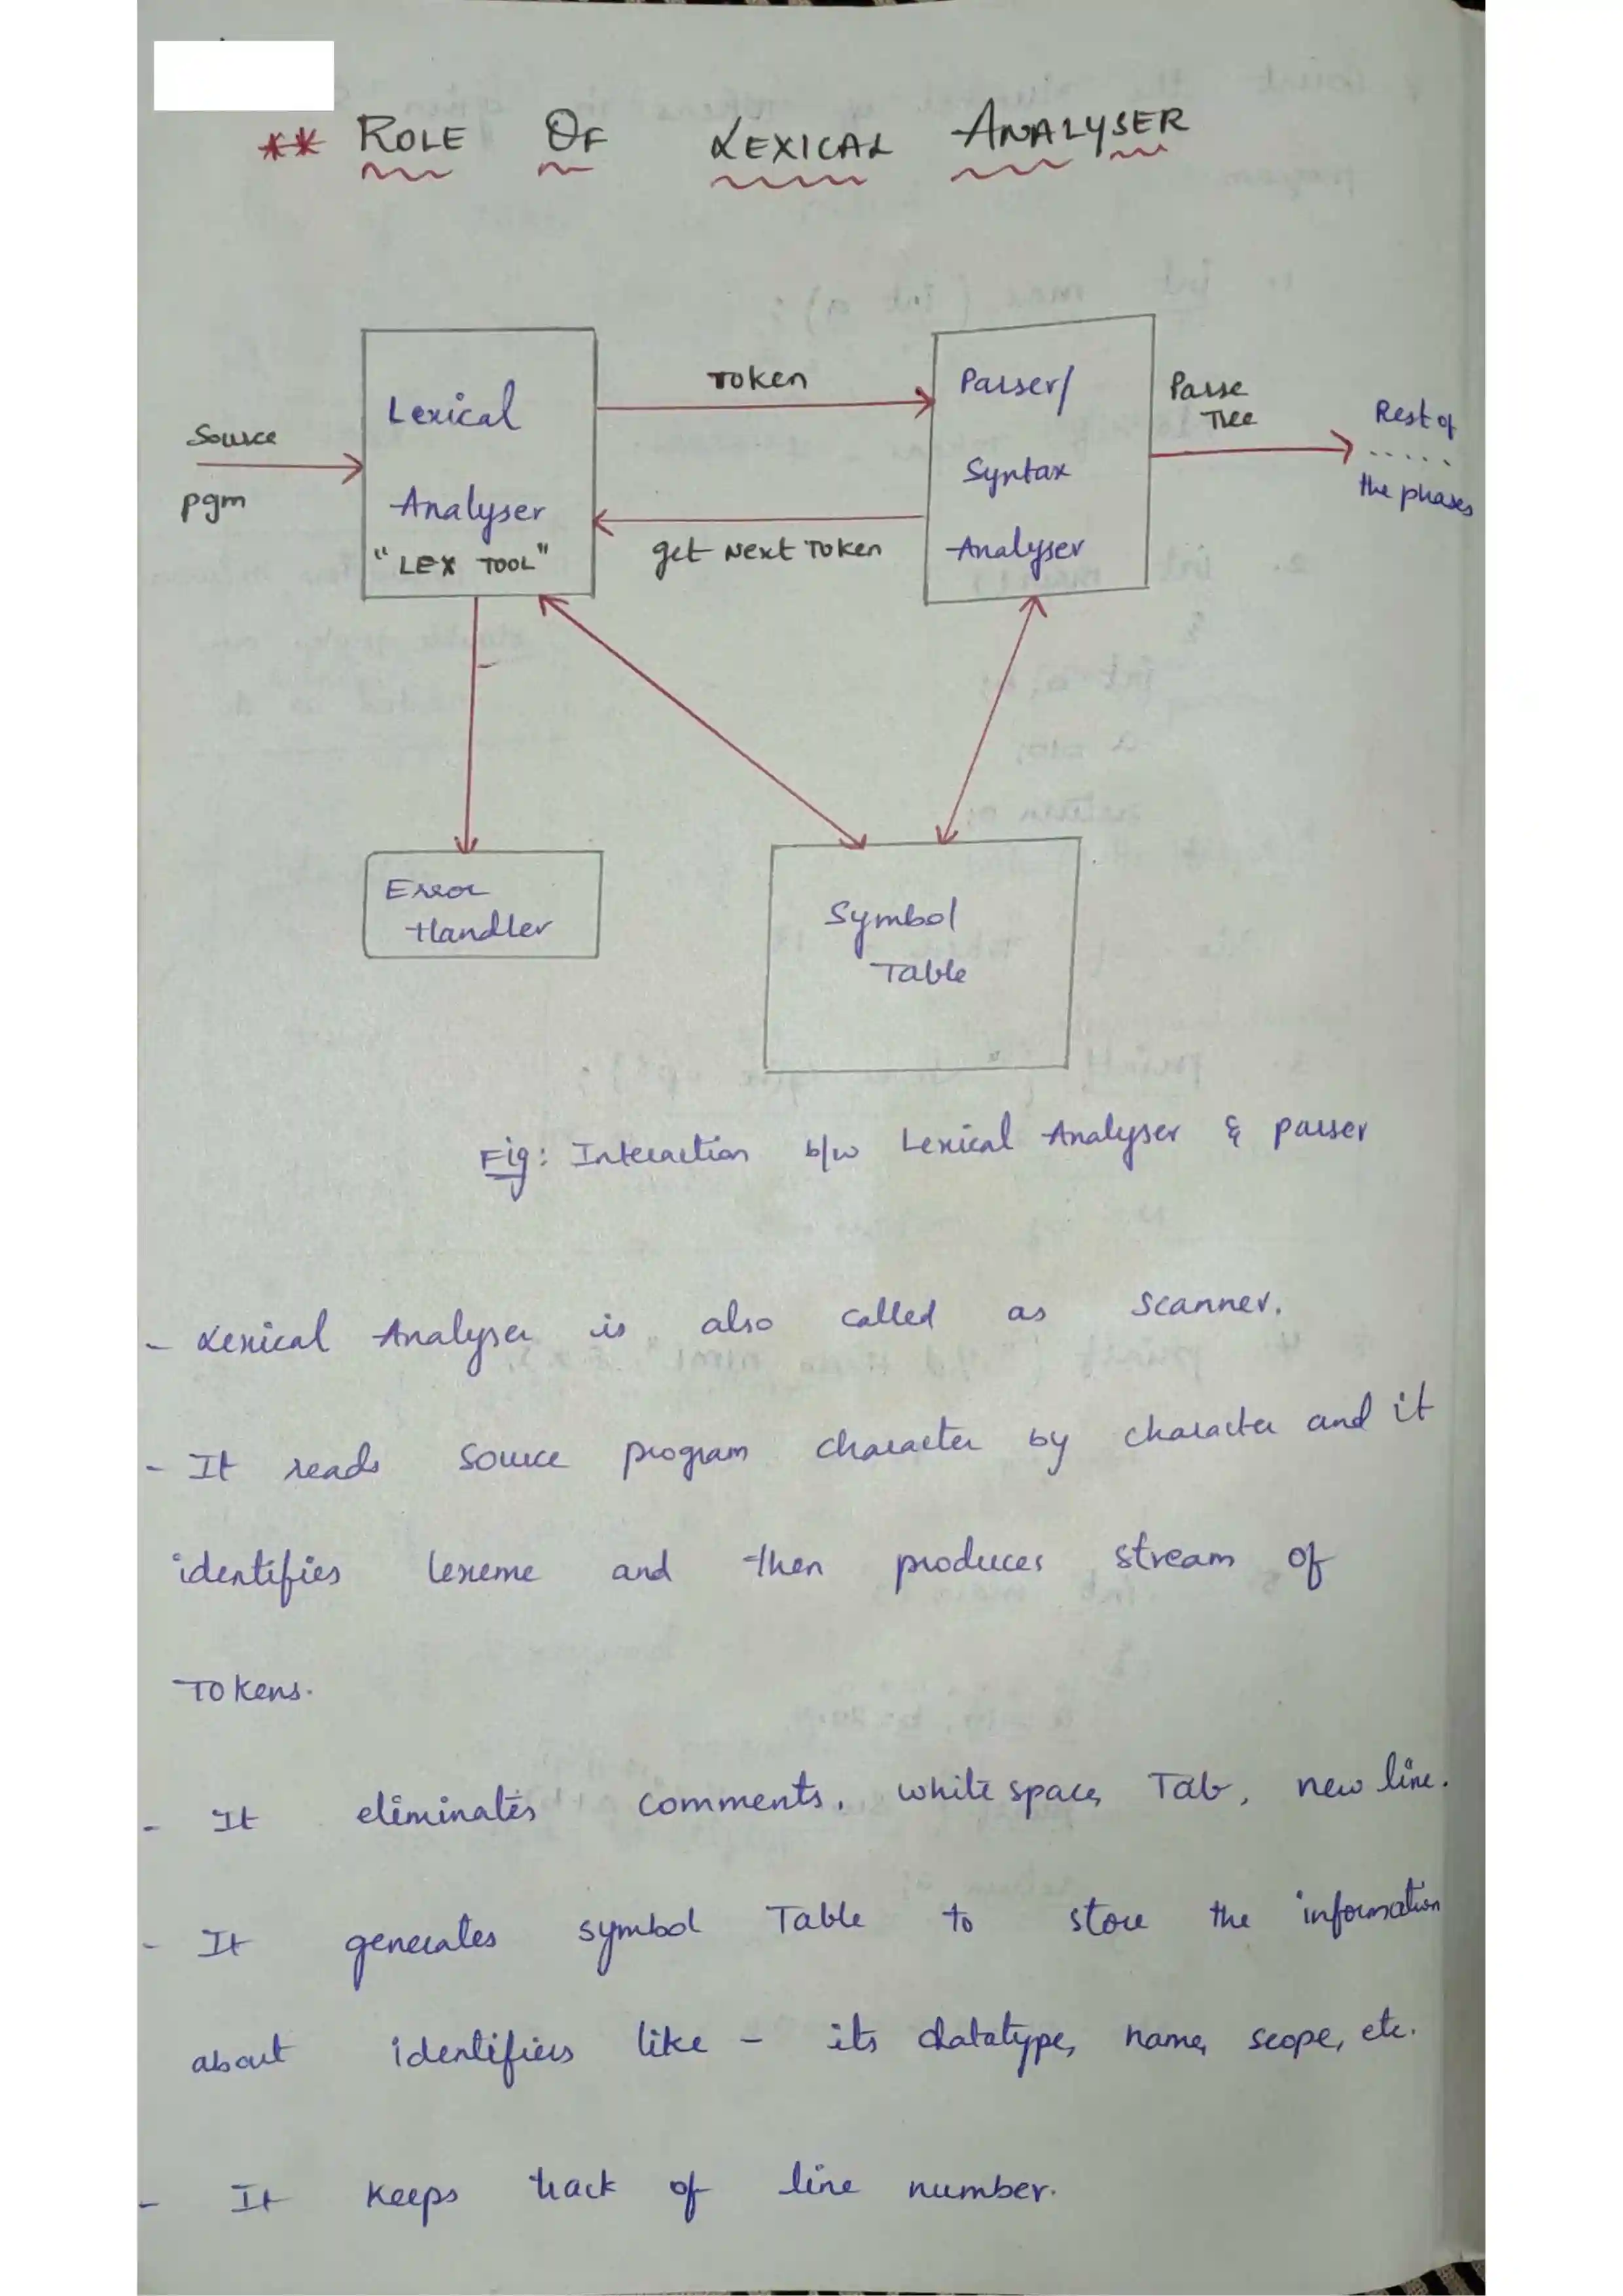 ** ROLE OF LEXICAL ANALYSER
Source
pgm
Lexical
Analyser
"LEX TOOL"
Token
get Next Token
Parser/
Syntax
Analyser
Parse
Tree
Rest of
.....
the phases
Error
Handler
Symbol
Table
Fig: Interaction b/w Lexical Analyser & parser
- Lexical Analyser is also called as scanner.
- It reads source program character by character and it
identifies lexeme and then produces stream of
Tokens.
- It eliminates comments, white space, Tab, new line.
- It generates symbol Table to store the information
about identifiers like - its datatype, name, scope, etc.
- It keeps track of line number.